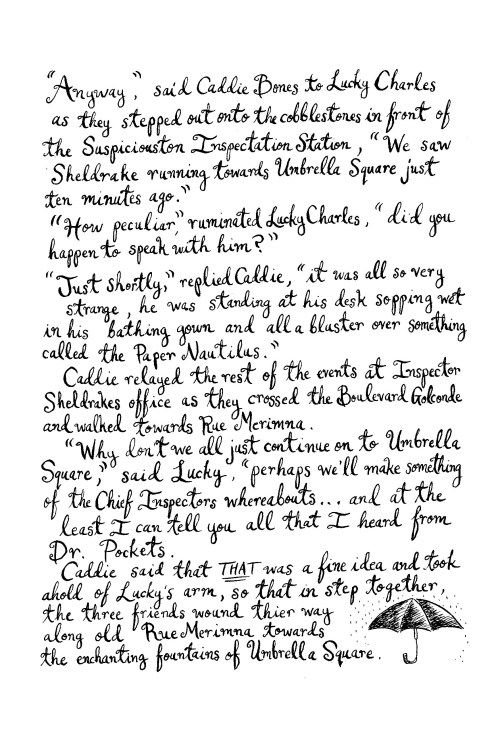 "Anyway", said Caddie Bones to Lucky Charles
as they stepped out onto the cobblestones in front of
the Suspiciouston Inspectation Station, "We saw
Sheldrake running towards Umbrella Square just
ten minutes ago."
"How peculiar," ruminated Lucky Charles, "did you
happen to speak with him?"
"Just shortly," replied Caddie, "it was all so very
strange, he was standing at his desk sopping wet
in his bathing gown and all a bluster over something
called the Paper Nautilus."
Caddie relayed the rest of the events at Inspector
Sheldrakes office as they crossed the Boulevard Golconde
and walked towards Rue Merimna.
"Why don't we all just continue on to Umbrella
Square," said Lucky, "perhaps we'll make something
of the Chief Inspectors whereabouts... and at the
least I can tell you all that I heard from
Dr. Pockets.
Caddie said that THAT was a fine idea and took
ahold of Lucky's arm, so that in step together,
the three friends wound thier way
along old Rue Merimna towards
the enchanting fountains of Umbrella Square.